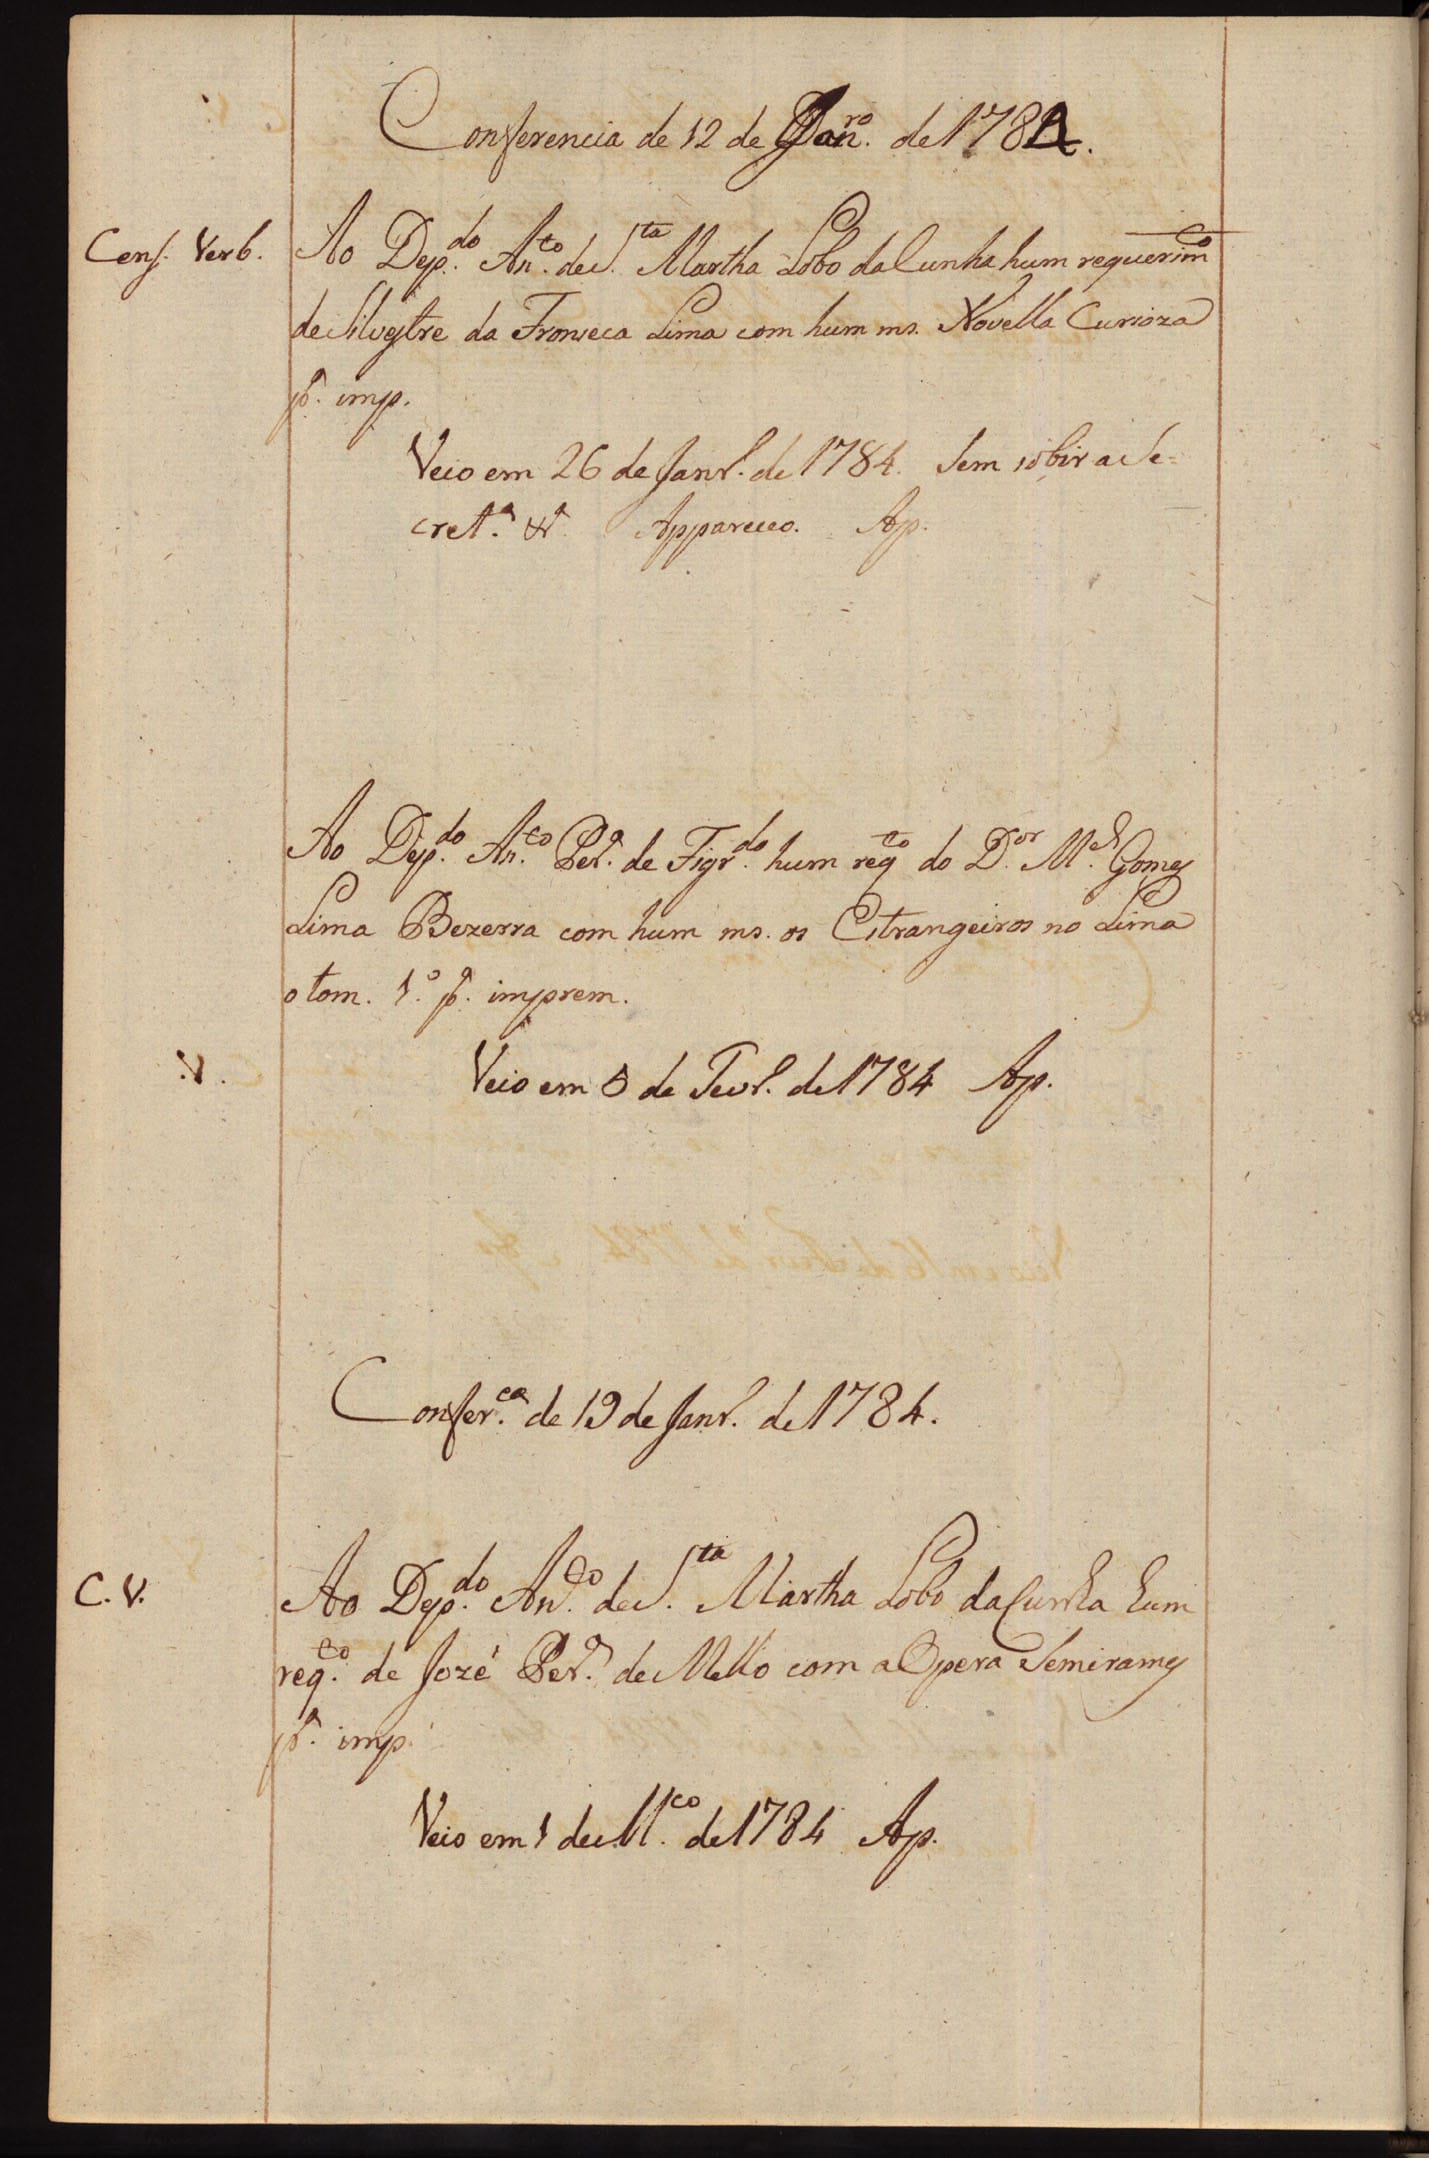 Conferencia de 12 de Janro. de 1784.
Cens. Verb.
Ao Dep.do An.to de S.ta Martha Lobo da Cunha hum requerim.to
de Silvestre da Fronseca Lima com hum ms. Novella Curioza
p.a imp.
Veio em 26 de Janr.o de 1784. Sem sobir a Se=
cret.a &.a Appareceo. Ap.
Ao Dep.do An.to Per.a de Figr.do hum req.to do D.or M.el Gomes
Lima Bezerra com hum ms. os Estrangeiros no Lima
o tom. 1.o p.a imprem.
.V.
Veio em 5 de Fevr.o de 1784 Ap.
Confer.ca de 19 de Janr.o de 1784.
C. V.
Ao Dep.do An.to de S.ta Martha Lobo da Cunha hum
req.to de Jozé Per.a de Mello com a Opera Semirames
p.a imp.
Veio em 1 de M.co de 1784 Ap.